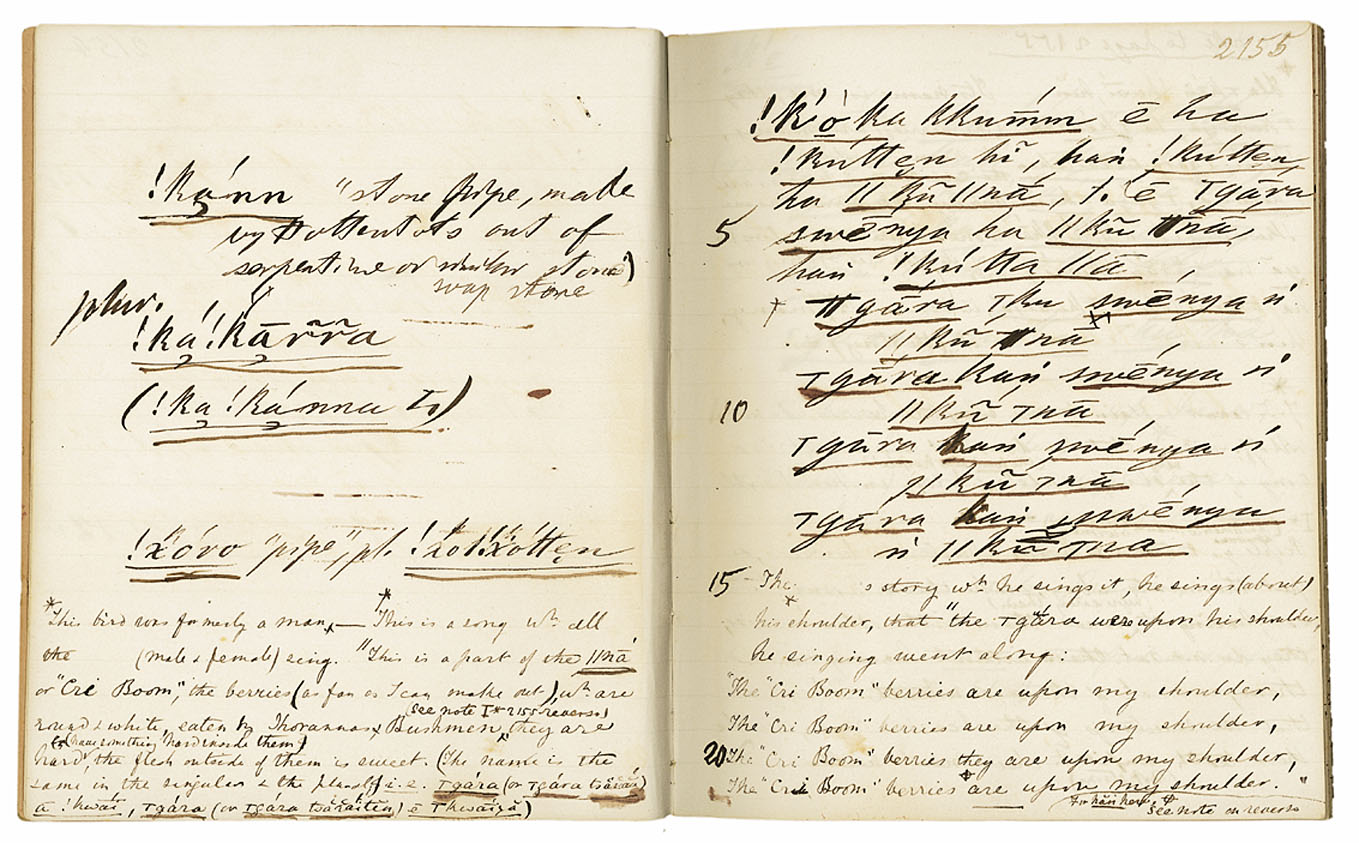 !kánn "stone pipe, made
by Hottentots out of
serpentine or similar stone")
soap stone
plur.
!ká!kārr̃a
(!ka!kánna to)
!ẍóro "pipe", pl. !ẍo!ẍótten
* This bird was formerly a man. — * This is a song wh. all
the (male & female) sing. "This is a part of the ǁnā
or "Cri Boom", the berries (as far as I can make out), wh. are
(See note I # 2155 reverse)
round & white, eaten by Bushmen, they are
(have something hard inside them)
hard, the flesh outside of them is sweet. (The name is the
same in the singular & the plural) i.e. Ƭgára (or Ƭgára
a !kwai, Ƭgára (or Ƭgára ē
2155
!k'ó ka kkumm ē ha
!kútten hĩ, han !kútten,
ha ǁkũ ǁnā, ē Ƭgára
5 swēnya ha ǁkũ ǁnā,
han !kútta ǁā,
Ƭgára Ƭku swēnya ń
ǁkũ Ƭnā
Ƭgára kan swēnya ń
10 ǁkũ Ƭnā
Ƭgára kan swēnya ń
ǁkũ Ƭnā
Ƭgára kan swēnya
ń ǁkũ Ƭna
15 The 's story wh. he sings it, he sings (about)
his shoulder, that "the Ƭgára were upon his shoulder,
he singing went along:
"The "Cri Boom" berries are upon my shoulder,
The "Cri Boom" berries are upon my shoulder,
20 The "Cri Boom" berries they are upon my shoulder,
The "Cri Boom" berries are upon my shoulder."
See note on reverse